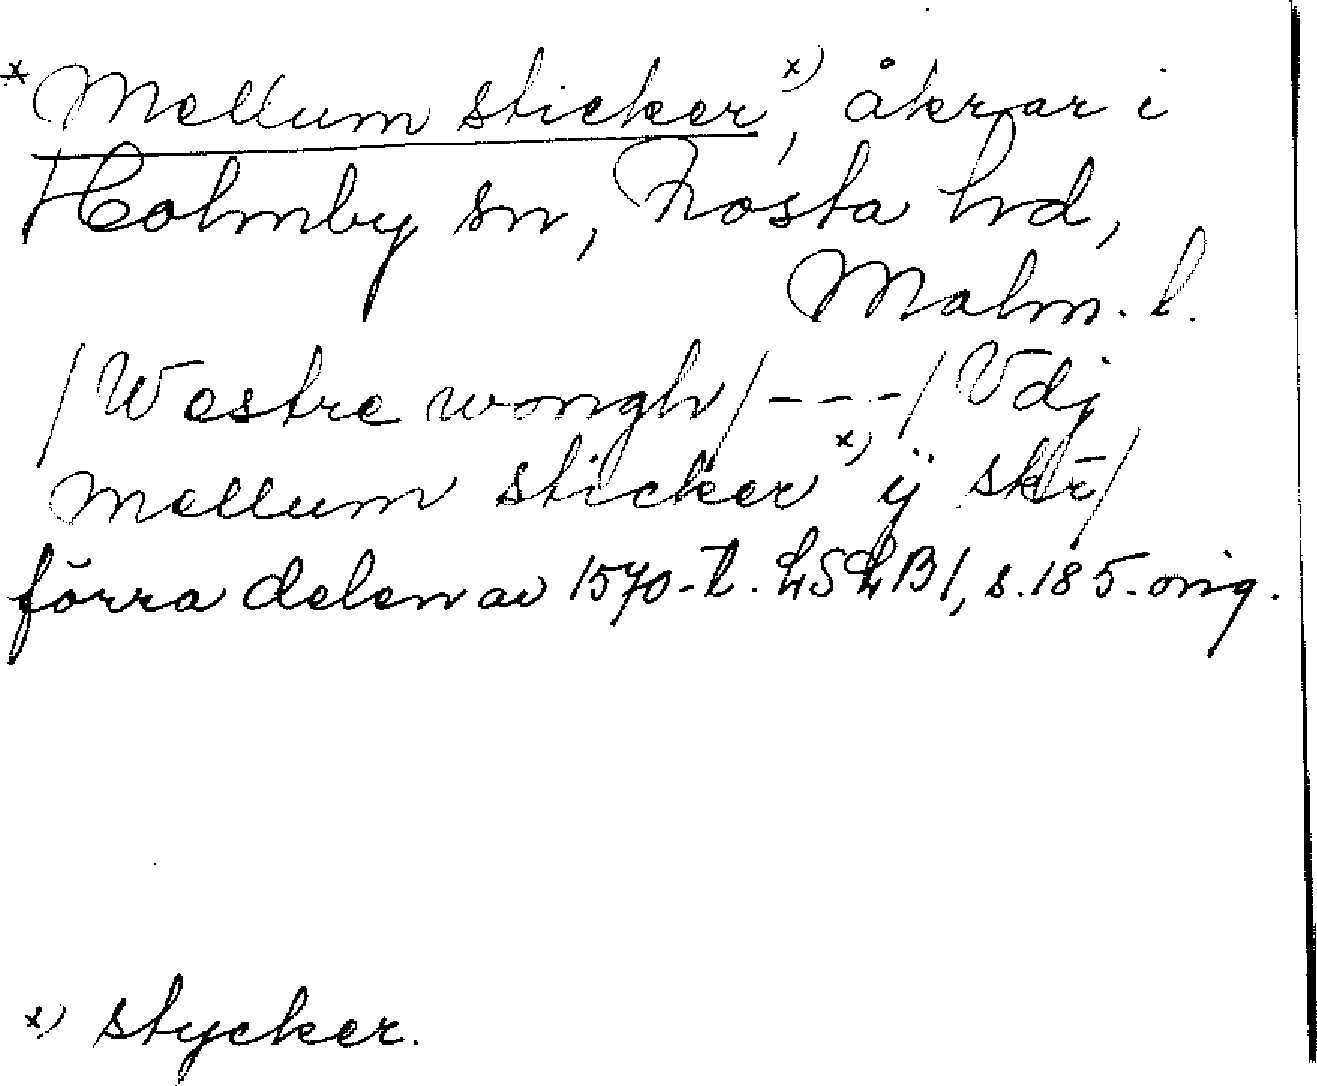 * Mellum sticker x), åkrar i
Holmby sn, Frosta hd,
Malm. l.
/Westre wongh/ - - - /Vdj
mellum sticker x) ÿ skr̄/
förra delen av 1570-t. LSLB1, s. 185. orig.
x) stycker.